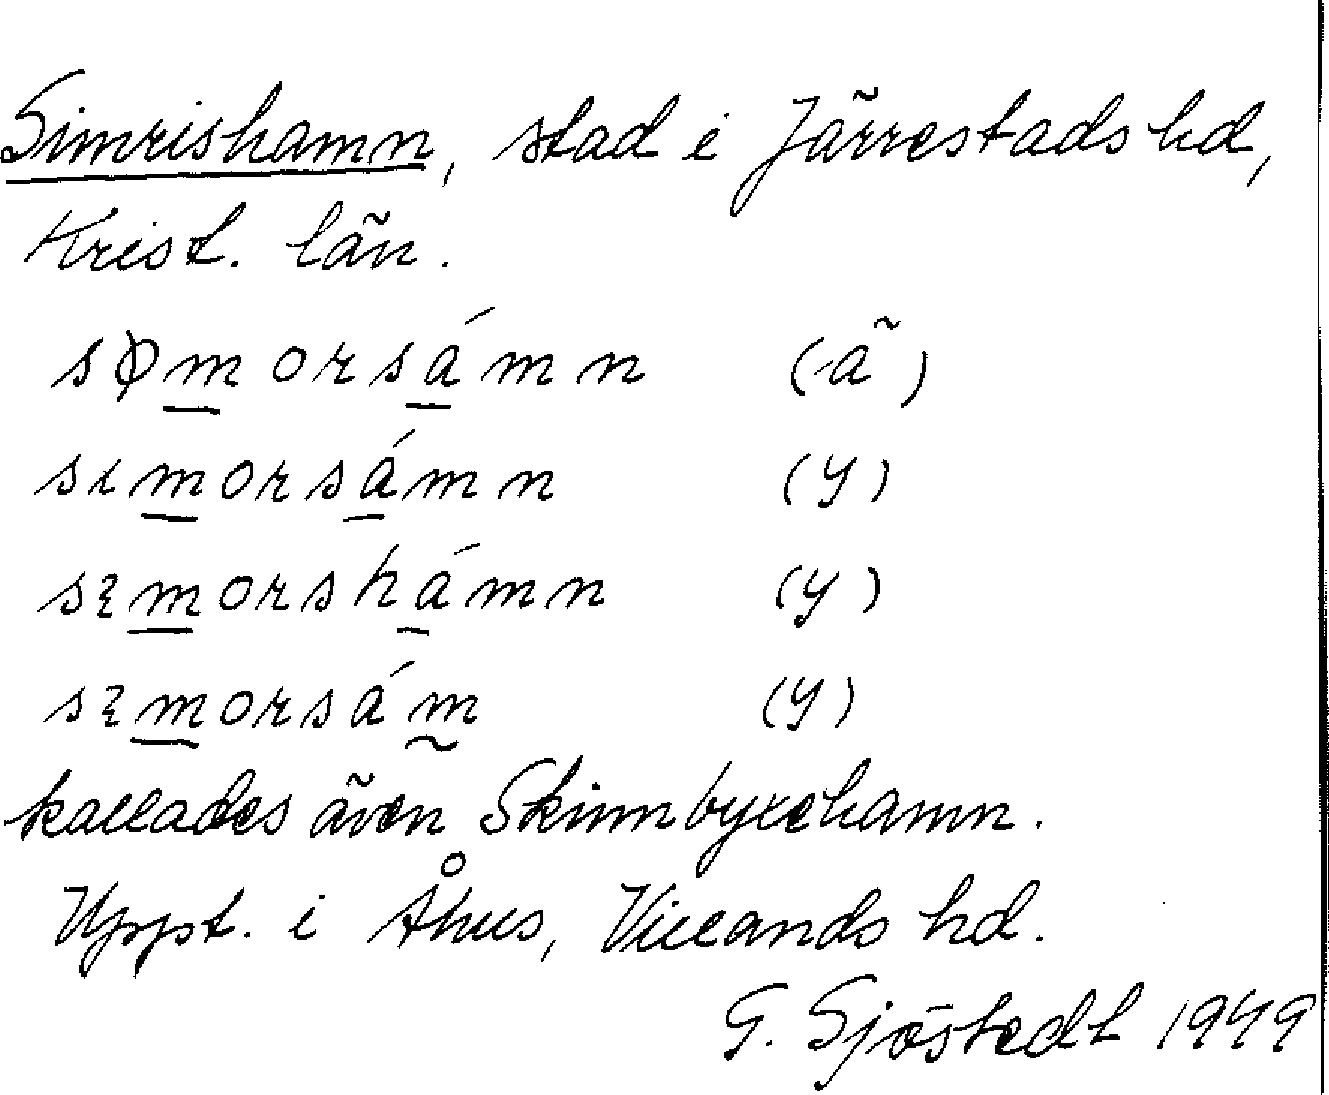 Simrishamn, stad i Järrestads hd,
Krist. län.
sømorsámn (ä)
sımorsámn (y)
sꝛmorshámn (y)
sꝛmorsám̰ (y)
kallades även Skinnbyxehamn.
Uppt. i Åhus, Villands hd.
G. Sjöstedt 1949